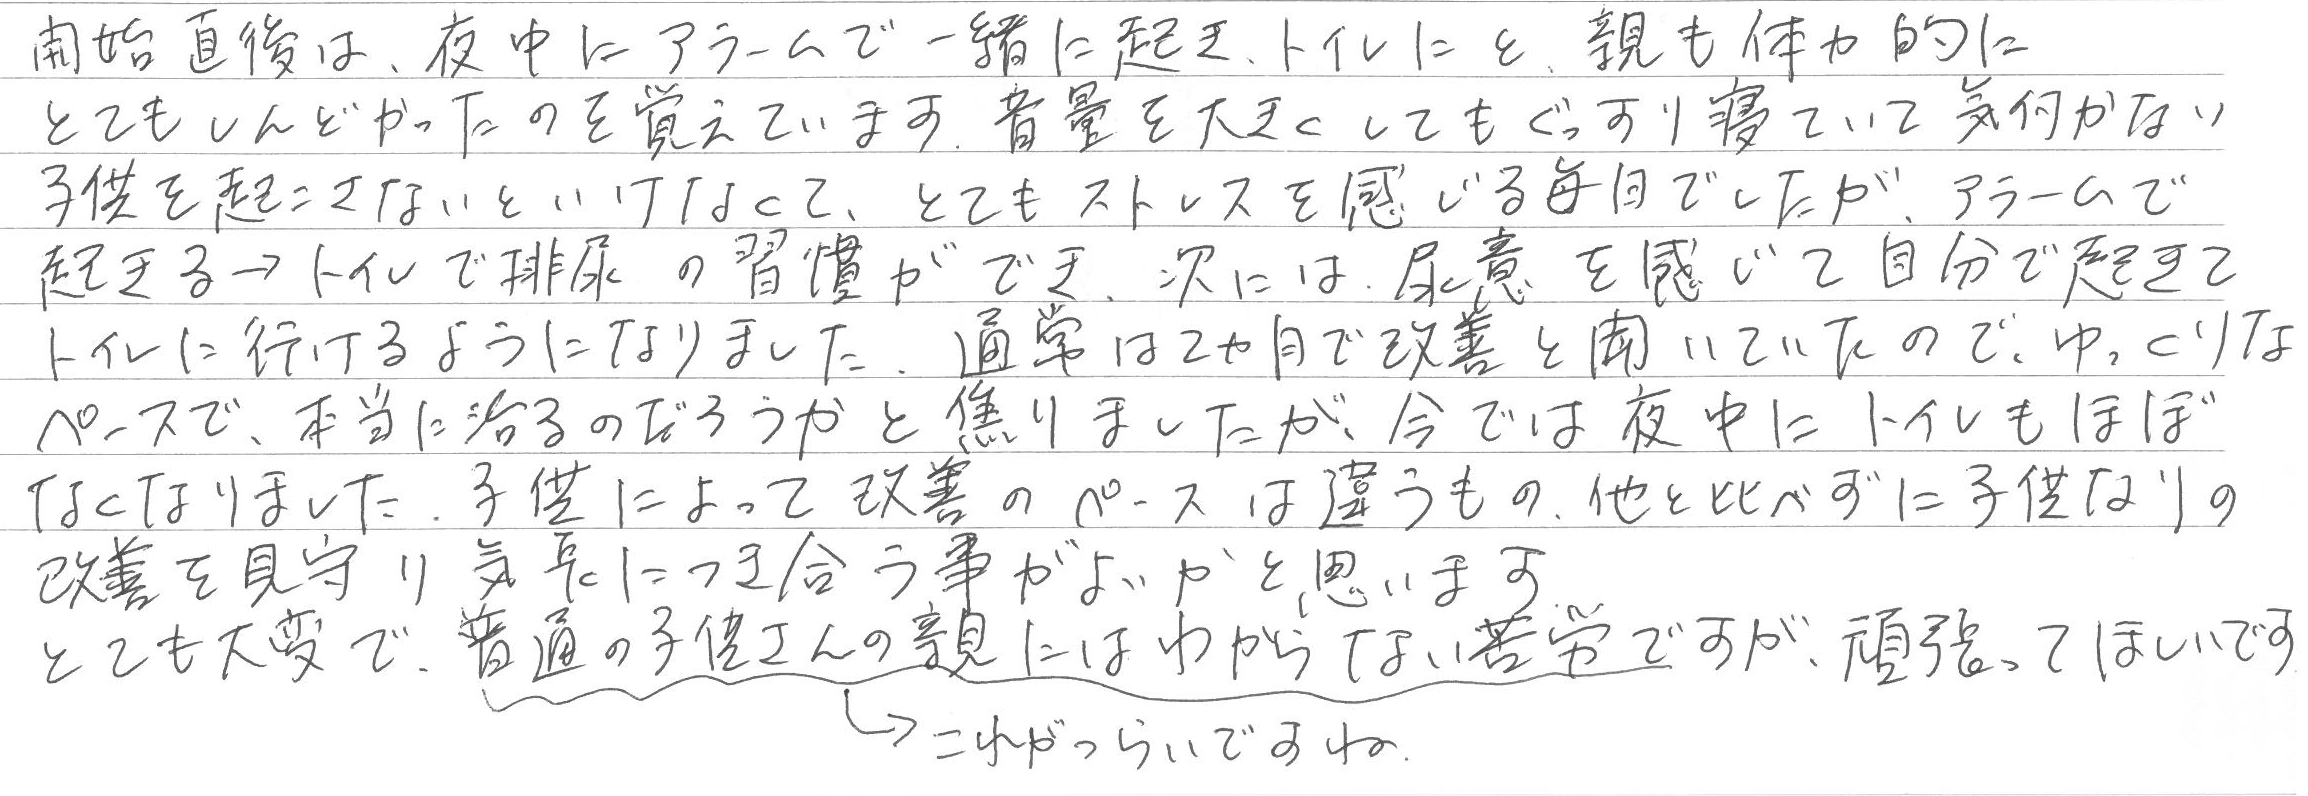 開始直後は、夜中にアラームで一緒に起き、トイレにと、親も体力的に
とてもしんどかったのを覚えています。音量を大きくしてもぐっすり寝ていて気付かない
子供を起こさないといけなくて、とてもストレスを感じる毎日でしたが、アラームで
起きる→トイレで排尿の習慣ができ、次には、尿意を感じて自分で起きて
トイレに行けるようになりました。通常は2ヵ月で改善と聞いていたので、ゆっくりな
ペースで、本当に治るのだろうかと焦りましたが、今では夜中にトイレもほぼ
なくなりました。子供によって改善のペースは違うもの、他と比べずに子供なりの
改善を見守り気長につき合う事がよいかと思います。
とても大変で、普通の子供さんの親にはわからない苦労ですが、頑張ってほしいです
↳これがつらいですね。